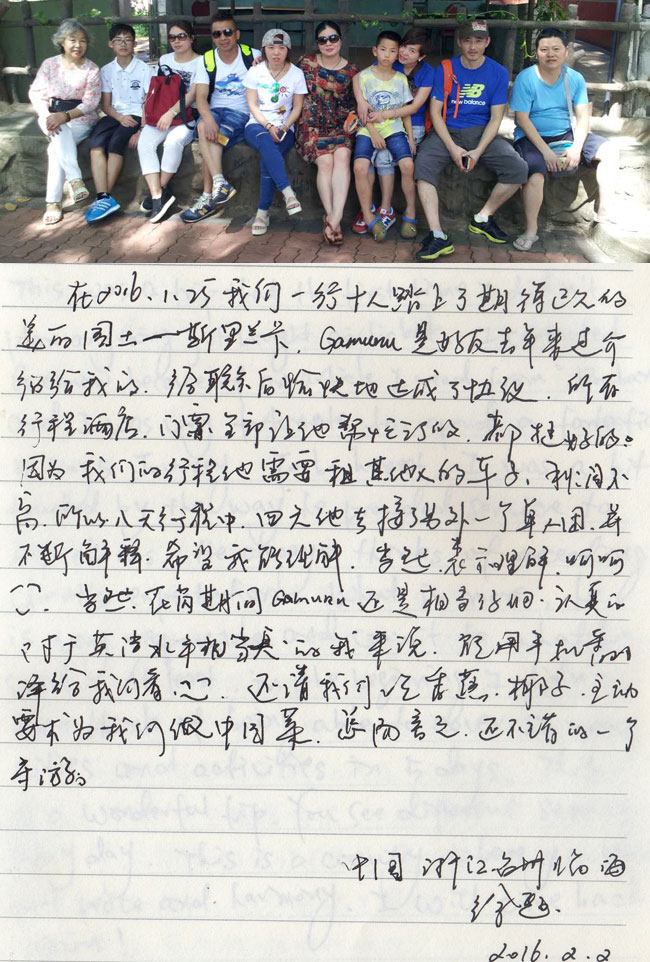 new balance
在2016.1.25我们一行十人踏上了期待已久的
美丽国土—斯里兰卡. Gamunu是好友去年来过介
绍给我的. 经联系后愉快地达成了协议. 所有
行程酒店. 门票全部让他帮忙订的. 都挺好的.
因为我们的行程他需要租其他人的车子, 利润不
高. 所以八天行程中, 四天他去接了另外一个单人团. 并
不断解释. 希望我能理解. 当然. 表示理解. 呵呵
当然. 在岗期间Gamunu还是相当仔细. 认真的
对于英语水平相当臭的我来说. 能用手机翻
译给我们看. 还请我们吃香蕉. 椰子. 主动
要求为我们做中国菜. 总而言之. 还不错的一个
导游.
中国 浙江台州临海
2016.2.2